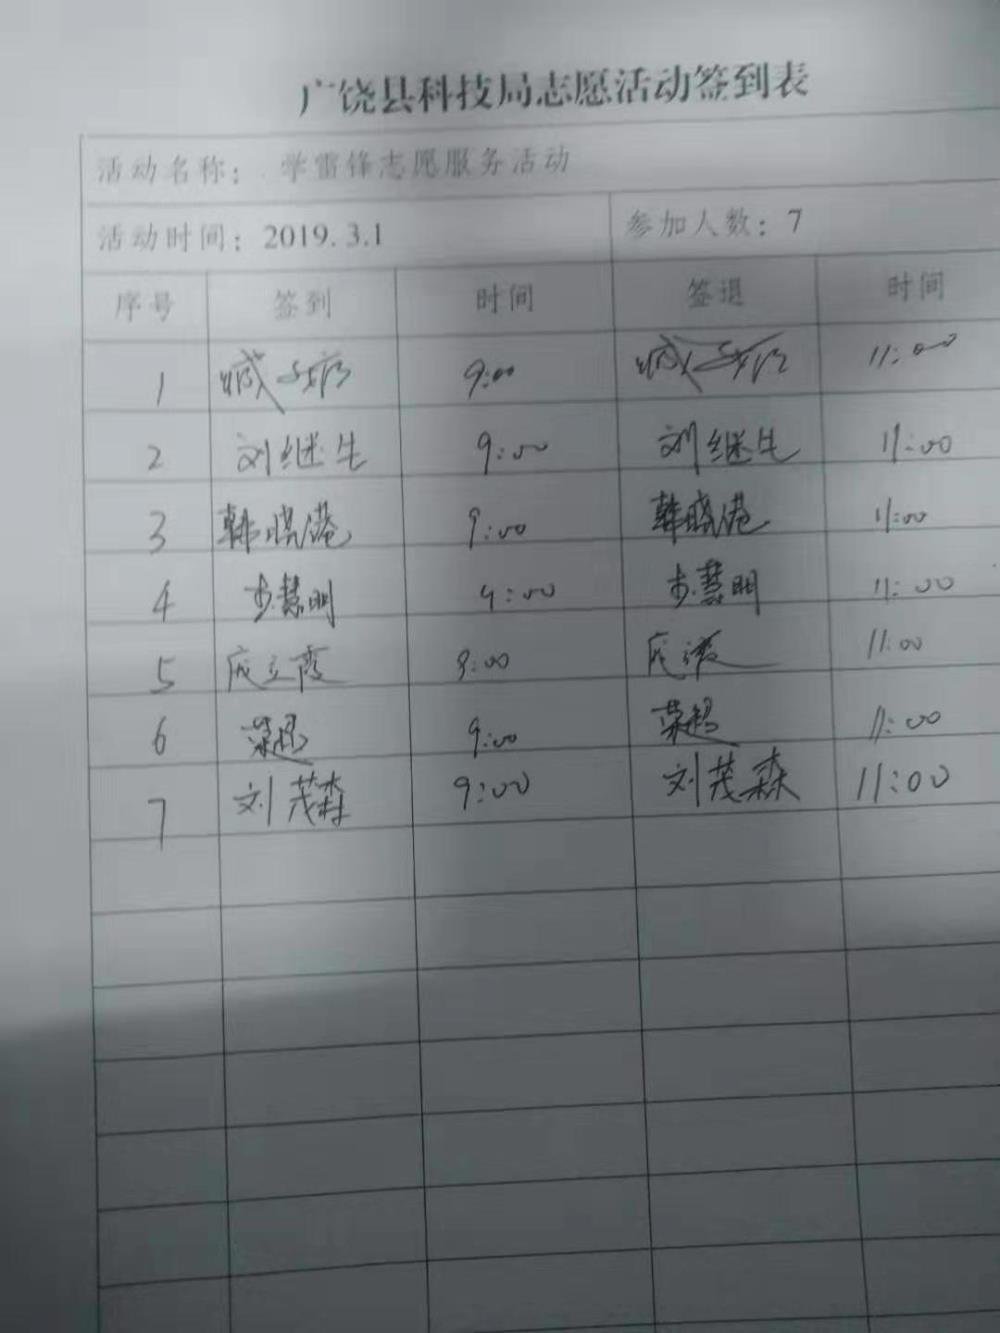 广饶县科技局志愿活动签到表
活动名称： 学雷锋志愿服务活动
活动时间：2019.3.1 参加人数：7
序号 签到 时间 签退 时间
1 9:00 11:00
2 刘继生 9:00 刘继生 11:00
3 韩晓港 9:00 韩晓港 11:00
4 步慧明 9:00 步慧明 11:00
5 9:00 11:00
6 荣超 9:00 荣超 11:00
7 刘茂森 9:00 刘茂森 11:00